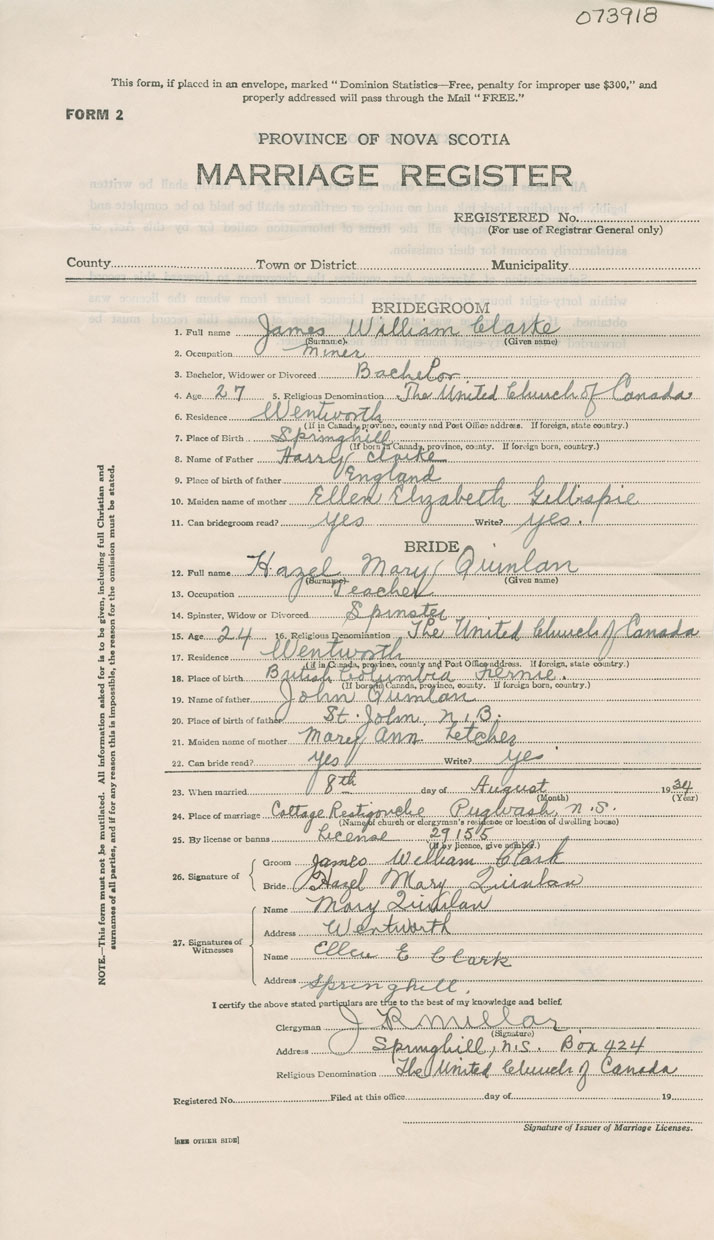 073918
This form, if placed in an envelope, marked "Dominion Statistics—Free, penalty for improper use $300," and
properly addressed will pass through the Mail "FREE."
FORM 2
PROVINCE OF NOVA SCOTIA
MARRIAGE REGISTER
REGISTERED No.
(For use of Registrar General only)
County Town or District Municipality
BRIDEGROOM
1. Full name James William Clarke
(Surname) (Given name)
2. Occupation Miner
3. Bachelor, Widower or Divorced Bachelor
4. Age 27 5. Religious Denomination The United Church of Canada
6. Residence Wentworth
(If in Canada, province, county and Post Office address. If foreign, state country.)
7. Place of Birth Springhill
(If born in Canada, province, county. If foreign born, country.)
8. Name of Father Harry Clarke
9. Place of birth of father England
10. Maiden name of mother Ellen Elizabeth Gillispie
11. Can bridegroom read? yes Write? yes.
BRIDE
12. Full name Hazel Mary Quinlan
(Surname) (Given name)
13. Occupation Teacher
14. Spinster, Widow or Divorced Spinster
15. Age 24 16. Religious Denomination The United Church of Canada
17. Residence Wentworth
(if in Canada, province, county and Post Office address. If foreign, state country.)
18. Place of birth British Columbia Fernie.
(If born in Canada, province, county. If foreign born, country.)
19. Name of father John Quinlan
20. Place of birth of father St. John, N.B.
21. Maiden name of mother Mary Ann Letcher
22. Can bride read? yes Write? yes
23. When married 8th day of August 1934
(Month) (Year)
24. Place of marriage Cottage Restigouche Pugwash, N.S.
(Name of church or clergyman's residence or location of dwelling house)
25. By license or banns License 29155
(If by licence, give number.)
26. Signature of Groom James William Clark
Bride Hazel Mary Quinlan
27. Signatures of Witnesses
Name Mary Quinlan
Address Wentworth
Name Ellen E Clark
Address Springhill.
I certify the above stated particulars are true to the best of my knowledge and belief.
Clergyman J R Millar
(Signature)
Address Springhill, N.S. Box 424
Religious Denomination The United Church of Canada
Registered No. Filed at this office day of 19
Signature of Issuer of Marriage Licenses.
[SEE OTHER SIDE]
NOTE.—This form must not be mutilated. All information asked for is to be given, including full Christian and
surnames of all parties, and if for any reason this is impossible, the reason for the omission must be stated.